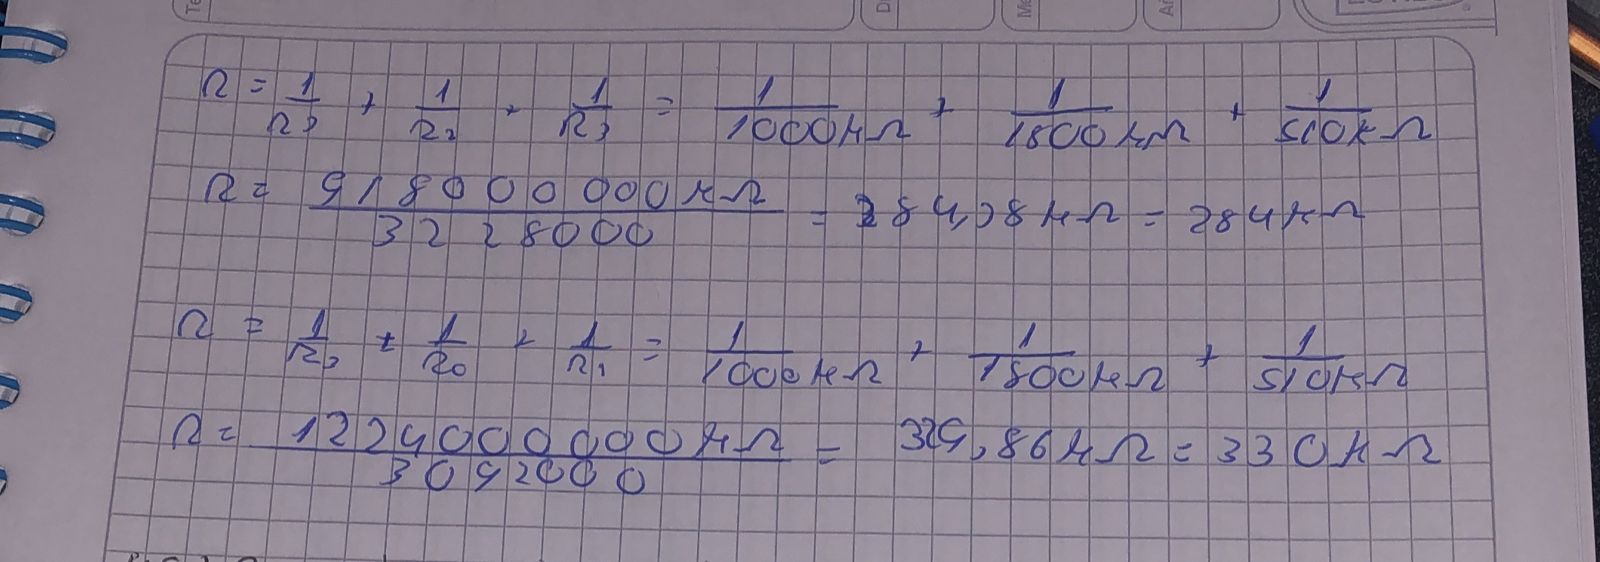 R = 1/R3 + 1/R2 + 1/R3 = 1/1000KΩ + 1/1800KΩ + 1/510KΩ
R = 918000000KΩ/3228000 = 284,38KΩ = 284KΩ
R = 1/R3 + 1/R0 + 1/R1 = 1/1000KΩ + 1/1800KΩ + 1/510KΩ
R = 1224000000KΩ/3092000 = 329,86KΩ = 330KΩ